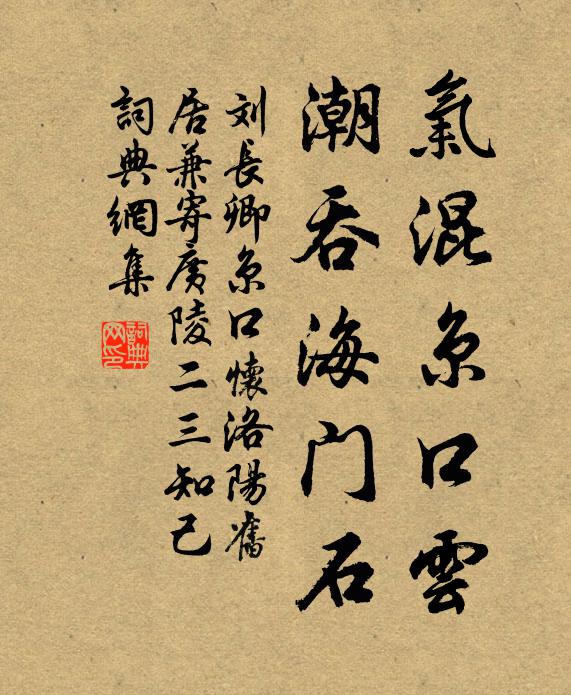 氣混京口雲
潮吞海門石
刘長卿京口懷洛陽舊
居兼寄廣陵二三知己
詞典網集
詞典网印